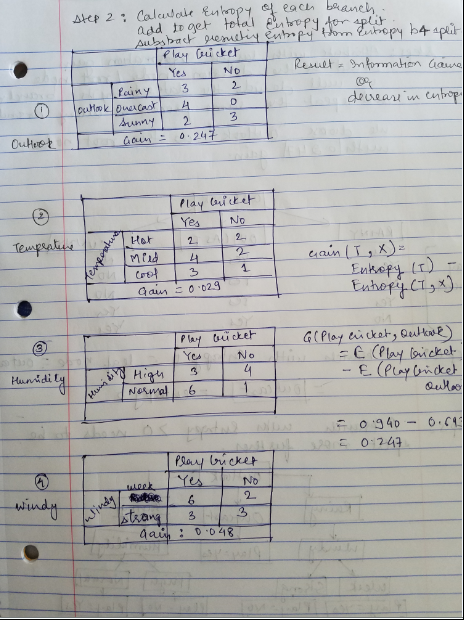 Step 2 : Calculate Entropy of each branch.
add to get total Entropy for split.
Substract resulting Entropy from Entropy b4 split
Result = Information Gain
or
decrease in entropy
①
Outlook
Play Cricket
Yes No
Outlook Rainy 3 2
Overcast 4 0
Sunny 2 3
Gain = 0.247
②
Temprature
Play Cricket
Yes No
Temperature Hot 2 2
Mild 4 2
Cool 3 1
Gain = 0.029
Gain (T, X) =
Entropy (T) -
Entropy (T, X)
③
Humidity
Play Cricket
Yes No
Humidity High 3 4
Normal 6 1
G(Play Cricket, Outlook)
= E (Play Cricket
- E (Play Cricket
Outloo
= 0.940 - 0.693
= 0.247
④
Windy
Play Cricket
Yes No
Windy week 6 2
Strong 3 3
Gain : 0.048